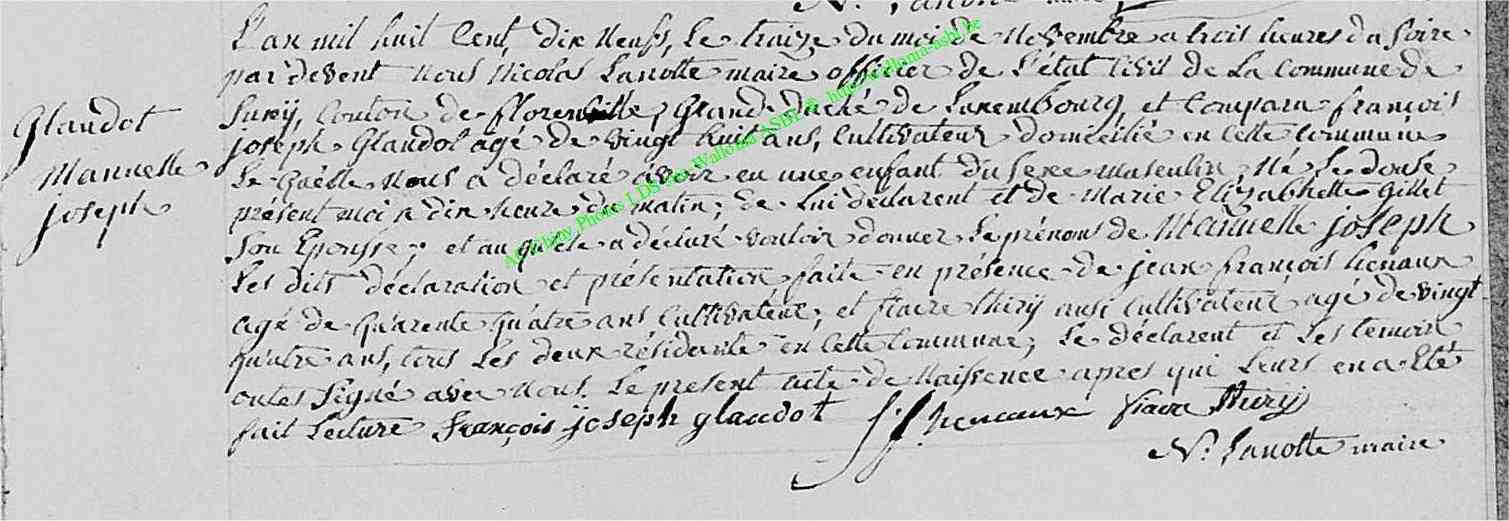 L'an mil huit Cent, dix Neufs, Le traize du moi de Novembre a trois heures du Soire
par devent Nous Nicolas Lanotte maire officier de L'état Civil de La Commune de
Suxij, Conton de florenville, Grand duché de Luxembourg, et Comparu françois
joseph Glaudot agé de vingt huit ans, Cultivateur domicilié en Cette Commune
Glaudot
Mannuelle
joseph
Le Quélle Nous a déclaré avoir eu une enfant du Sexe masculin, Né Le douse
présent moi a dix heure du matin; de Lui déclarent et de Marie Elizabhette Gillet
Son Epousse; et au quele a déclaré vouloir donner Le prénoms de Mannuelle joseph
Les dits déclaration et présentation faite en présence de jean françois henaux
agé de quarente quatre ans Cultivateur; et fiacre thirij ausi Cultivateur agé de vingt
quatre ans, tous Les deux résidante en Cette Commune; Le déclarent et Les temoin
ontes Signé avec Nous. Le present acte de Naissence apres qui Leurs en a Eté
fait Lecture François joseph glaudot J f henaux fiacre thirij
N. Lanotte maire